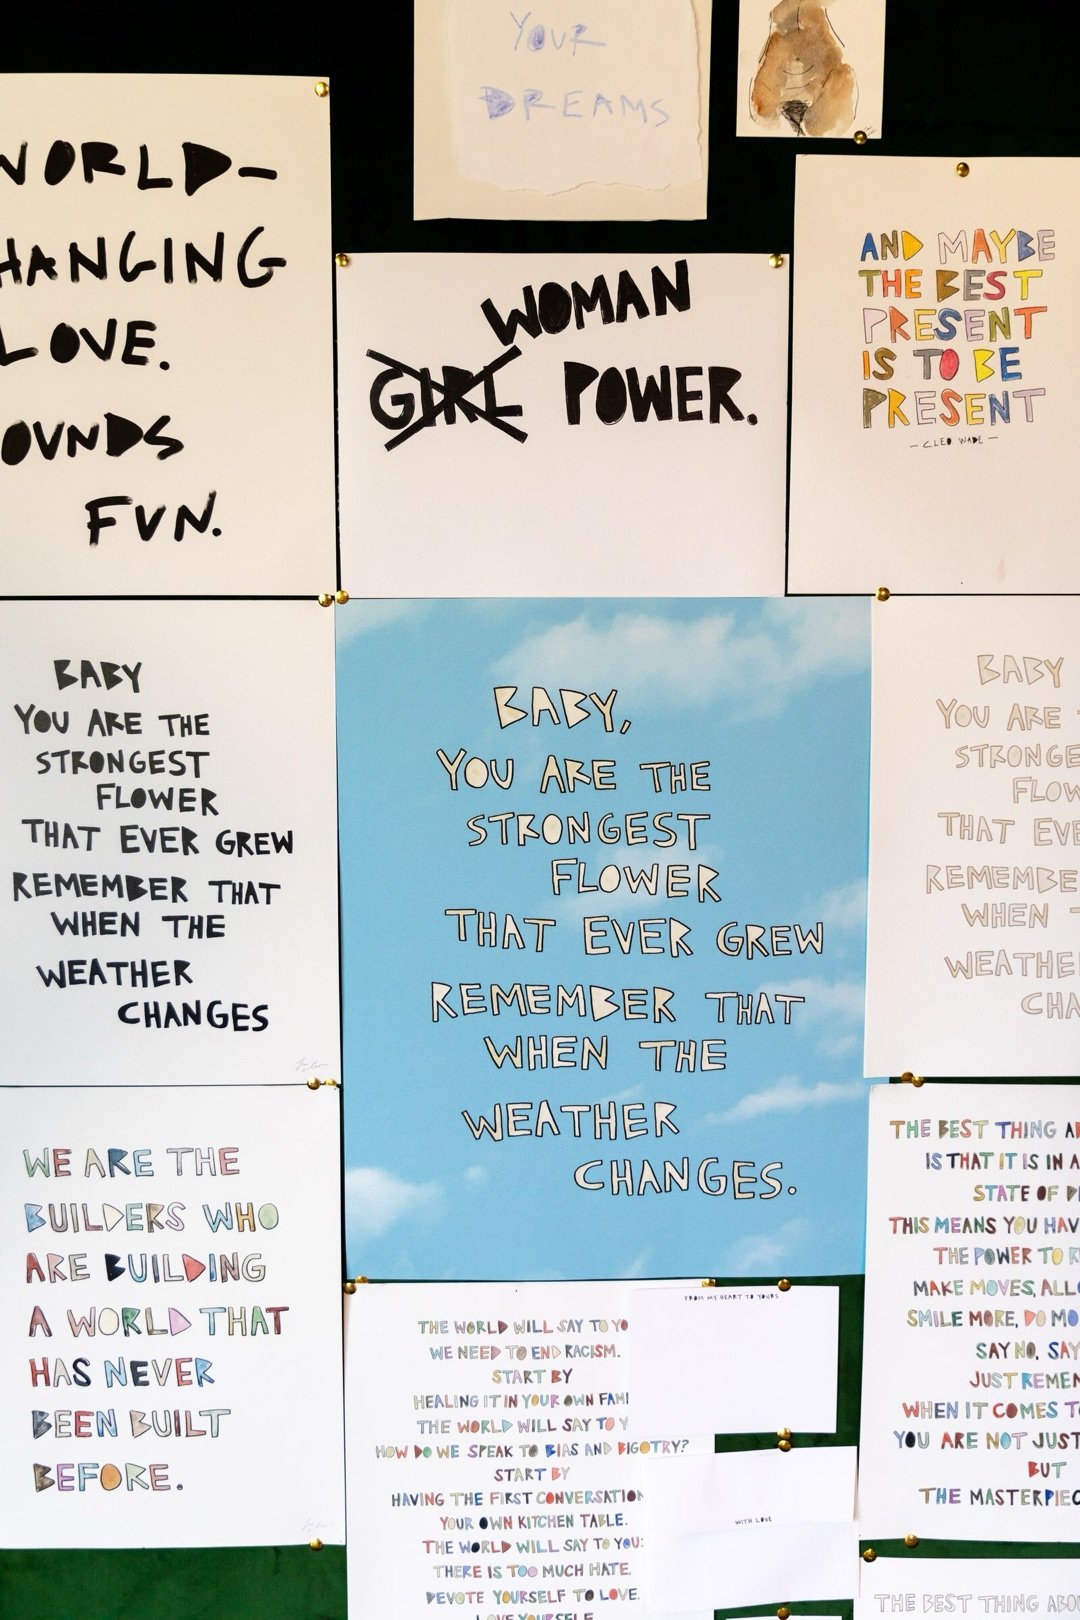 YOUR
DREAMS
WORLD-
HANGING
LOVE.
OUNDS
FUN.
WOMAN
GIRL POWER.
AND MAYBE
THE BEST
PRESENT
IS TO BE
PRESENT
- CLEO WADE -
BABY
YOU ARE THE
STRONGEST
FLOWER
THAT EVER GREW
REMEMBER THAT
WHEN THE
WEATHER
CHANGES
BABY,
YOU ARE THE
STRONGEST
FLOWER
THAT EVER GREW
REMEMBER THAT
WHEN THE
WEATHER
CHANGES.
BABY
YOU ARE
STRONGE
FLOW
THAT EVE
REMEMBE
WHEN
WEATHE
CHA
WE ARE THE
BUILDERS WHO
ARE BUILDING
A WORLD THAT
HAS NEVER
BEEN BUILT
BEFORE.
THE WORLD WILL SAY TO YO
WE NEED TO END RACISM.
START BY
HEALING IT IN YOUR OWN FAMI
THE WORLD WILL SAY TO Y
HOW DO WE SPEAK TO BIAS AND BIGOTRY?
START BY
HAVING THE FIRST CONVERSATION
YOUR OWN KITCHEN TABLE.
THE WORLD WILL SAY TO YOU:
THERE IS TOO MUCH HATE.
DEVOTE YOURSELF TO LOVE.
LOVE YOURSELF
FROM MY HEART TO YOURS
WITH LOVE
THE BEST THING A
IS THAT IT IS IN A
STATE OF
THIS MEANS YOU HAV
THE POWER TO
MAKE MOVES, ALL
SMILE MORE, DO MO
SAY NO, SAY
JUST REMEM
WHEN IT COMES T
YOU ARE NOT JUST
BUT
THE MASTERPIEC
THE BEST THING ABO